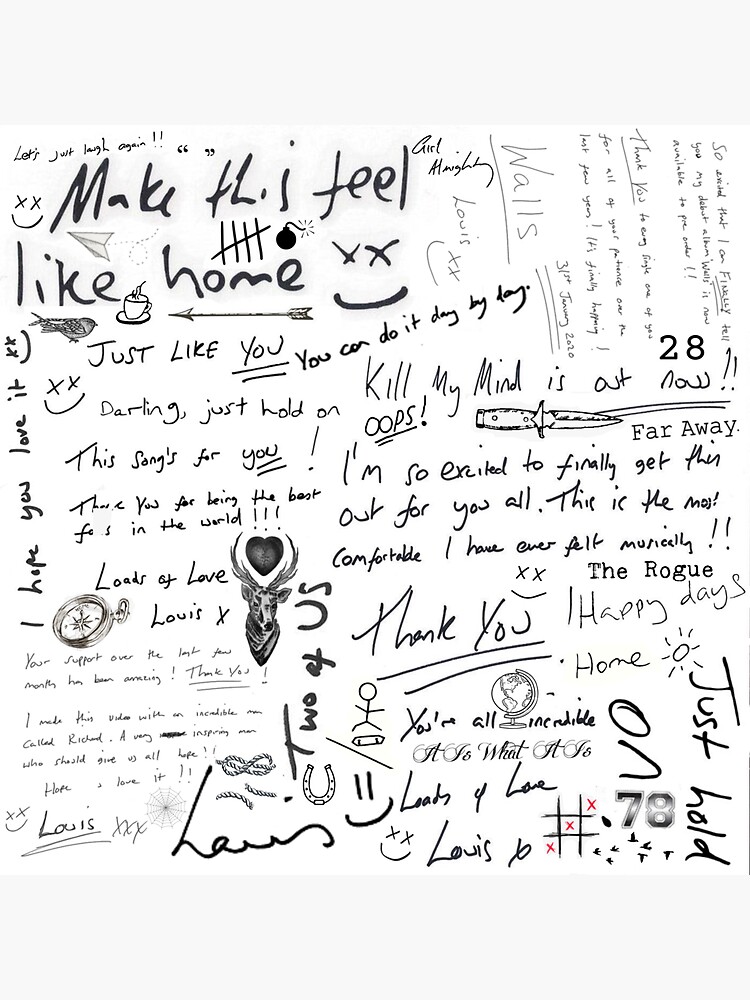 Let's just laugh again!!
“ ”
Make this feel
like home
xx
xx
Girl
Almighty
Louis xx
Walls
31st January 2020
Thank You to every single one of you
for all of your patience over the
last few years! It's finally happening!
So excited that I can FINALLY tell
you my debut album, Walls is now
available to pre order!!
JUST LIKE YOU
You can do it day by day.
28
Kill My Mind is out now!!
xx
Darling, just hold on
OOPS!
Far Away.
This song's for you!
I'm so excited to finally get this
out for you all. This is the most
comfortable I have ever felt musically!!
Thank You for being the best
fans in the world!!!
Loads of Love
Louis X
I hope you love it xx
The Rogue
xx
Thank You
Happy days
Home
Two of US
Your support over the last few
month has been amazing! Thank You!
I made this video with an incredible man
called Richard. A very inspiring man
who should give us all hope!!
Hope u love it!!
xx
Louis xxx
Louis
You're all incredible
It Is What It Is
Loads of Love
xx
Louis x
x
x
x
78
Just hold